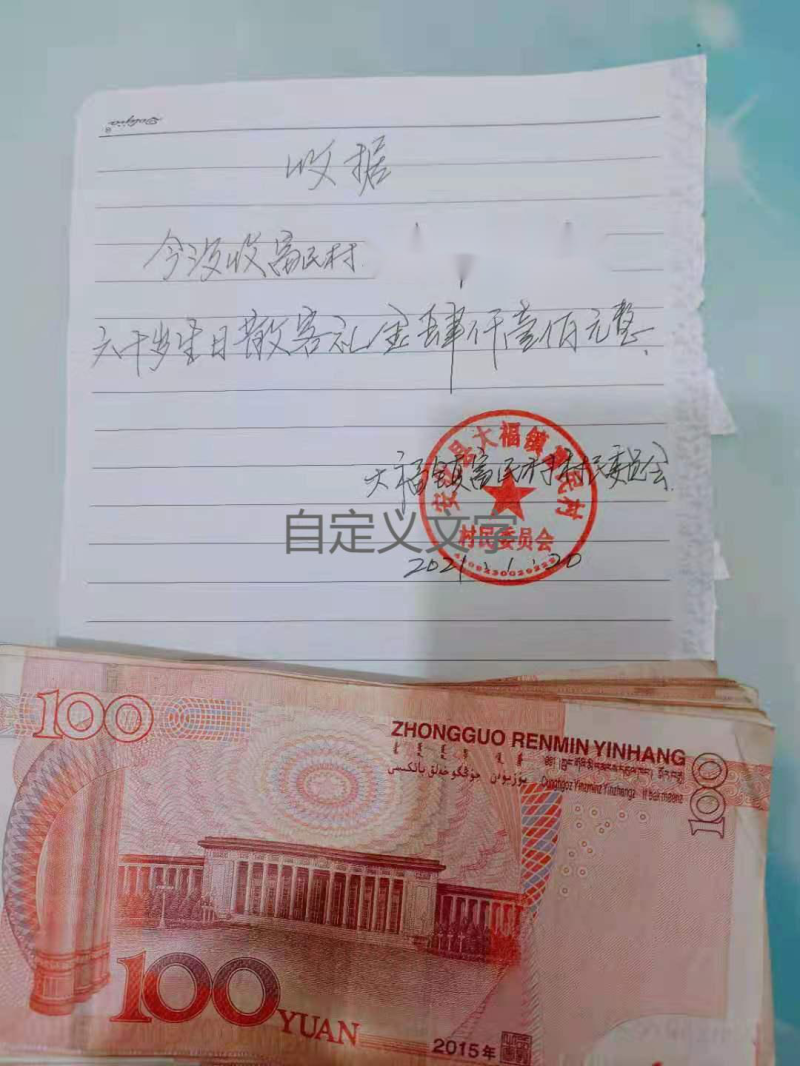 收据
今没收富民村
六十岁生日散客礼金肆仟壹佰元整.
大福镇富民村村民委员会
安化县大福镇富民村
村民委员会
自定义文字
2021.1.20
100
ZHONGGUO RENMIN YINHANG
100
100 YUAN
2015年